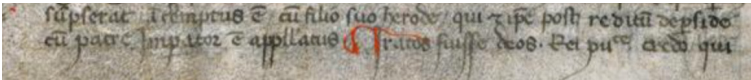 sūpserat īterēptus ē cū filio suo herode qui ⁊ ip̄e post reditū de pside
cū patre Impator ē appllatus Iratos fuisse deos. Rei puᶜᵉ credo qui